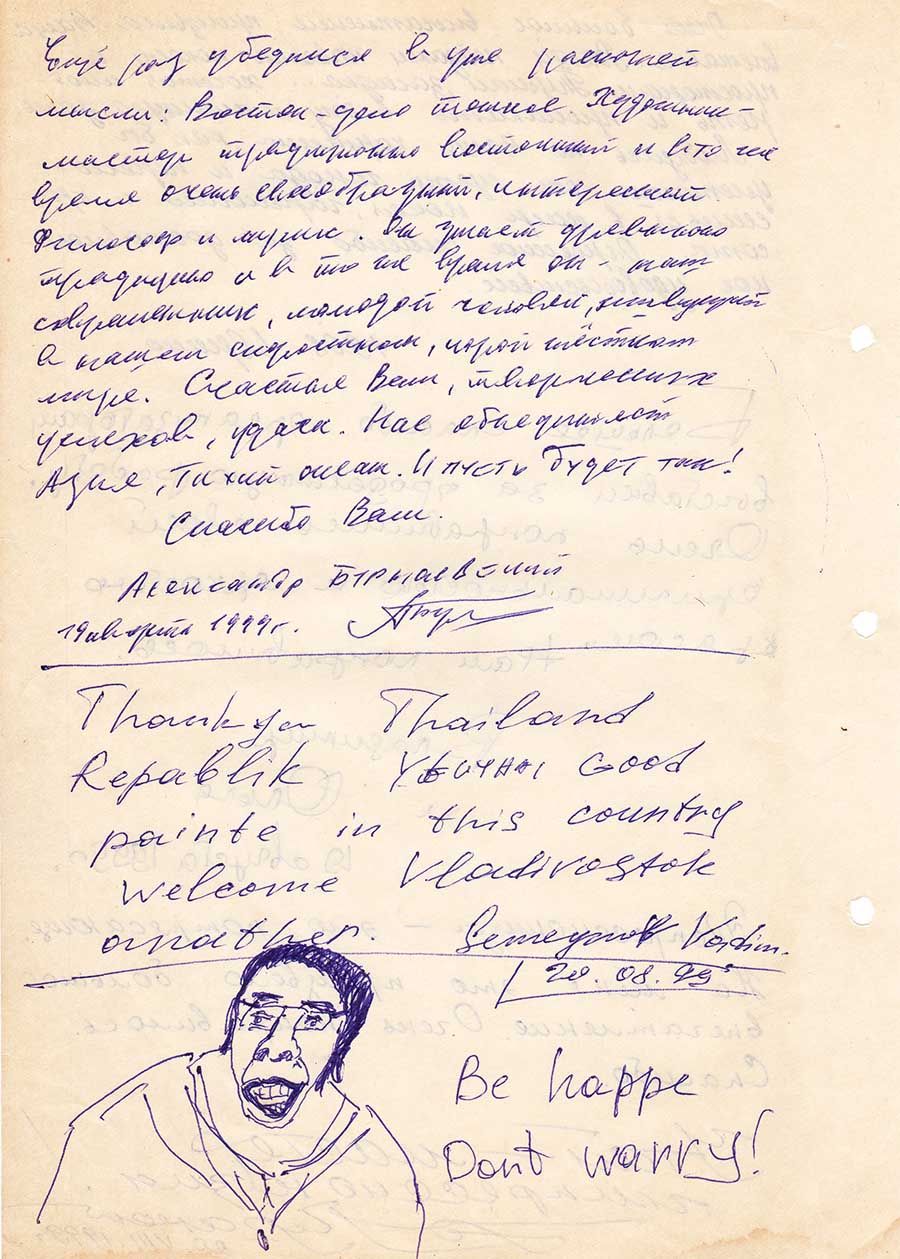 Ещё раз убедился в уже расхожей
мысли: Восток - дело тонкое. Художник -
мастер традиционно восточный и в то же
время очень своеобразный, интересный
философ и лирик. Он знает древнюю
традицию и в то же время он - наш
современник, молодой человек, живущий
в нашем скоростном, порой жёстком
мире. Счастья Вам, творческих
успехов, удачи. Нас объединяет
Азия, Тихий океан. И пусть будет так!
Спасибо Вам.
Александр
19 августа 1999г.
Thank you Thailand
Repablik Good
pointe in this country
Welcome Vladivostok
anather. Vadim.
20.08.99
Be happe
Dont warry!